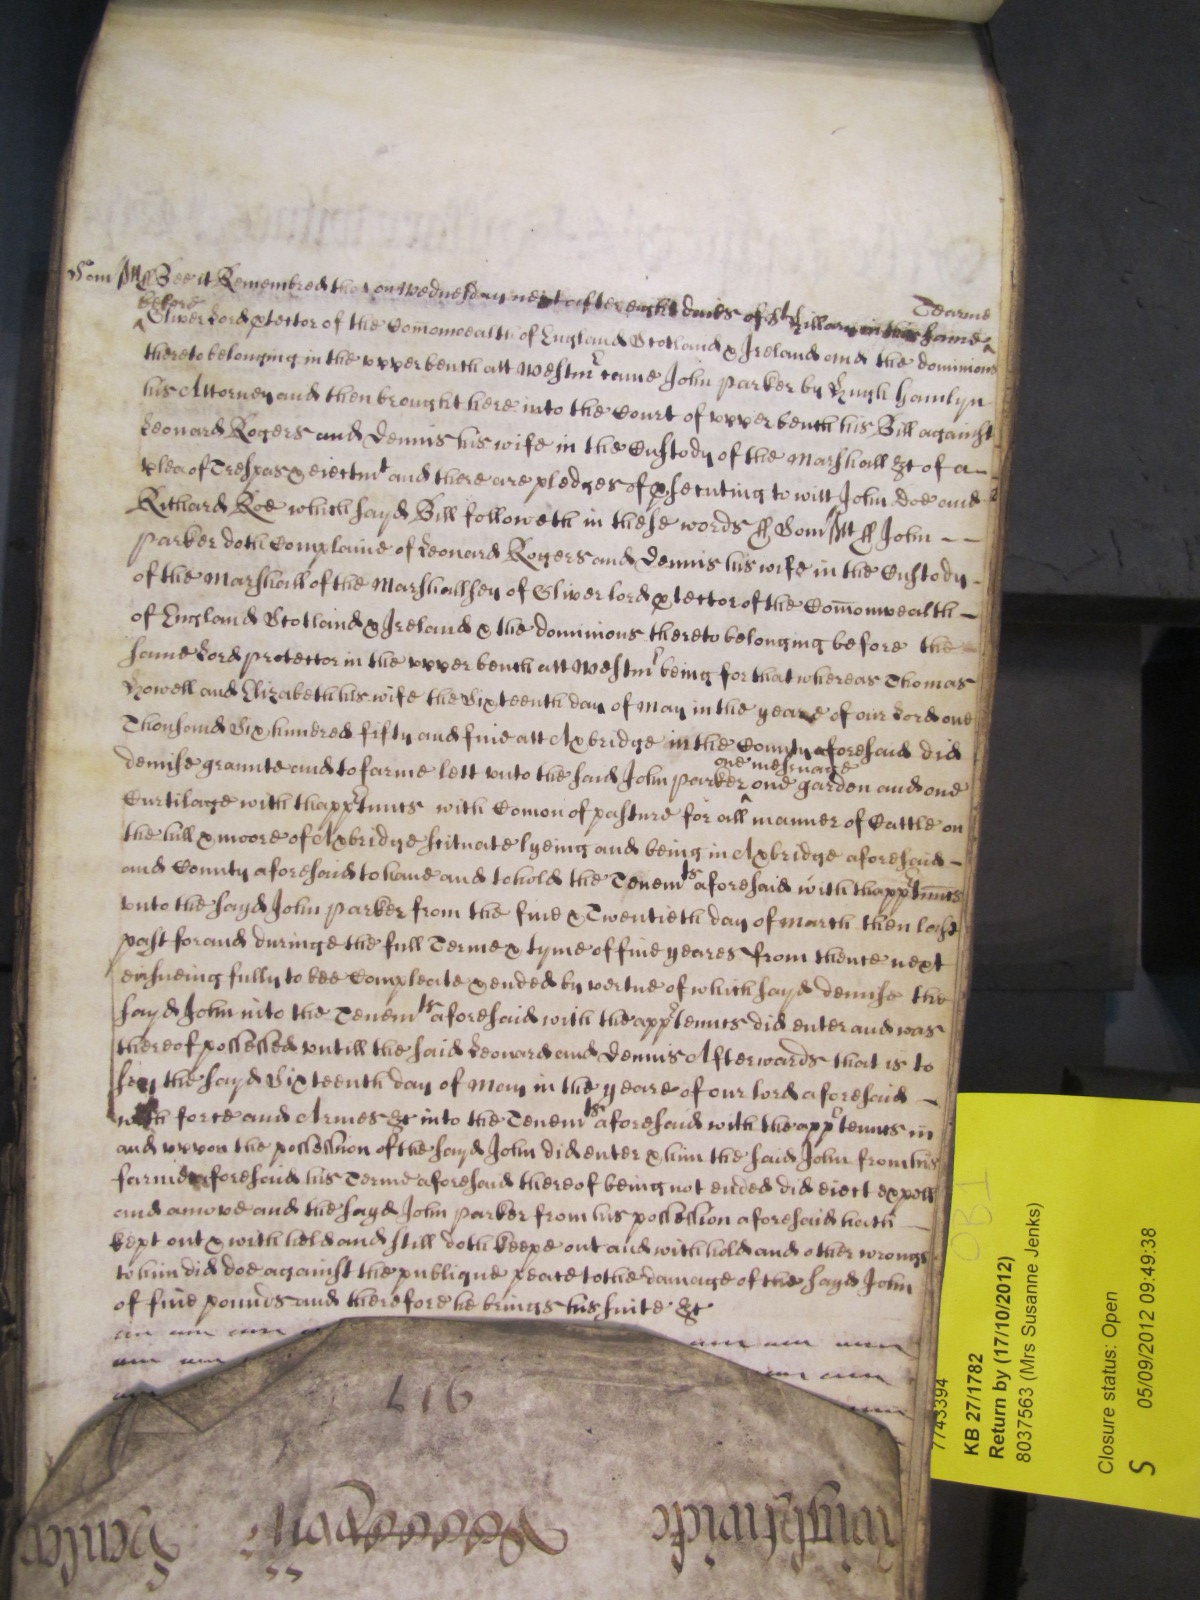 Som ss Bee it Remembred that on Wednesday next after eight daies of St Hillary in this same Tearme
before Oliver Lord ptector of the Comonwealth of England Scotland & Ireland and the dominions
thereto belonging in the upper bench att Westmr came John Parker by Hugh Hamlyn
his Attorney and then brought here into the Court of upper bench his Bill against
Leonard Rogers and Dennis his wife in the Custody of the Marshall &c of a
plea of Trespas & eiectmt and there are pledges of psecuting to witt John Doe and
Richard Roe which sayd Bill followeth in these words ss Som ss John
Parker doth Complaine of Leonard Rogers and Dennis his wife in the Custody
of the Marshall of the Marshallsey of Oliver lord ptector of the Comonwealth
of England Scotland & Ireland & the dominions thereto belonging before the
same Lord protector in the upper bench att Westmr being for that whereas Thomas
Howell and Elizabeth his wife the Sixteenth day of May in the yeare of our Lord one
Thousand Six hundred fifty and five att Axbridge in the County aforesaid did
demise graunte and to farme lett unto the said John Parker one messuage one garden and one
Curtilage with thapptunces with Comon of pasture for all manner of Cattle on
the hill & moore of Axbridge scituate lyeing and being in Axbridge aforesaid
and County aforesaid to have and to hold the Tenemts aforesaid with thapptunces
unto the sayd John Parker from the five & Twentieth day of March then last
past for and duringe the full Terme & tyme of five yeares from thence next
ensueing fully to bee Compleate & ended by vertue of which sayd demise the
sayd John into the Tenemts aforesaid with the apptennces did enter and was
thereof possessed untill the said Leonard and Dennis Afterwards that is to
say the sayd Sixteenth day of May in the yeare of our lord aforesaid
with force and Armes &c into the Tenemts aforesaid with the apptennces in
and uppon the possession of the sayd John did enter & him the said John from his
farme aforesaid his Terme aforesaid thereof being not ended did eiect expell
and amove and the sayd John Parker from his possession aforesaid hath
kept out & with held and still doth keepe out and withhold and other wrongs
to him did doe against the publique peace to the damage of the sayd John
of five pounds and therefore he brings his suite &c
917
Wightwicke
7743394
KB 27/1782
Return by (17/10/2012)
8037563 (Mrs Susanne Jenks)
Closure status: Open
S 05/09/2012 09:49:38
OB1